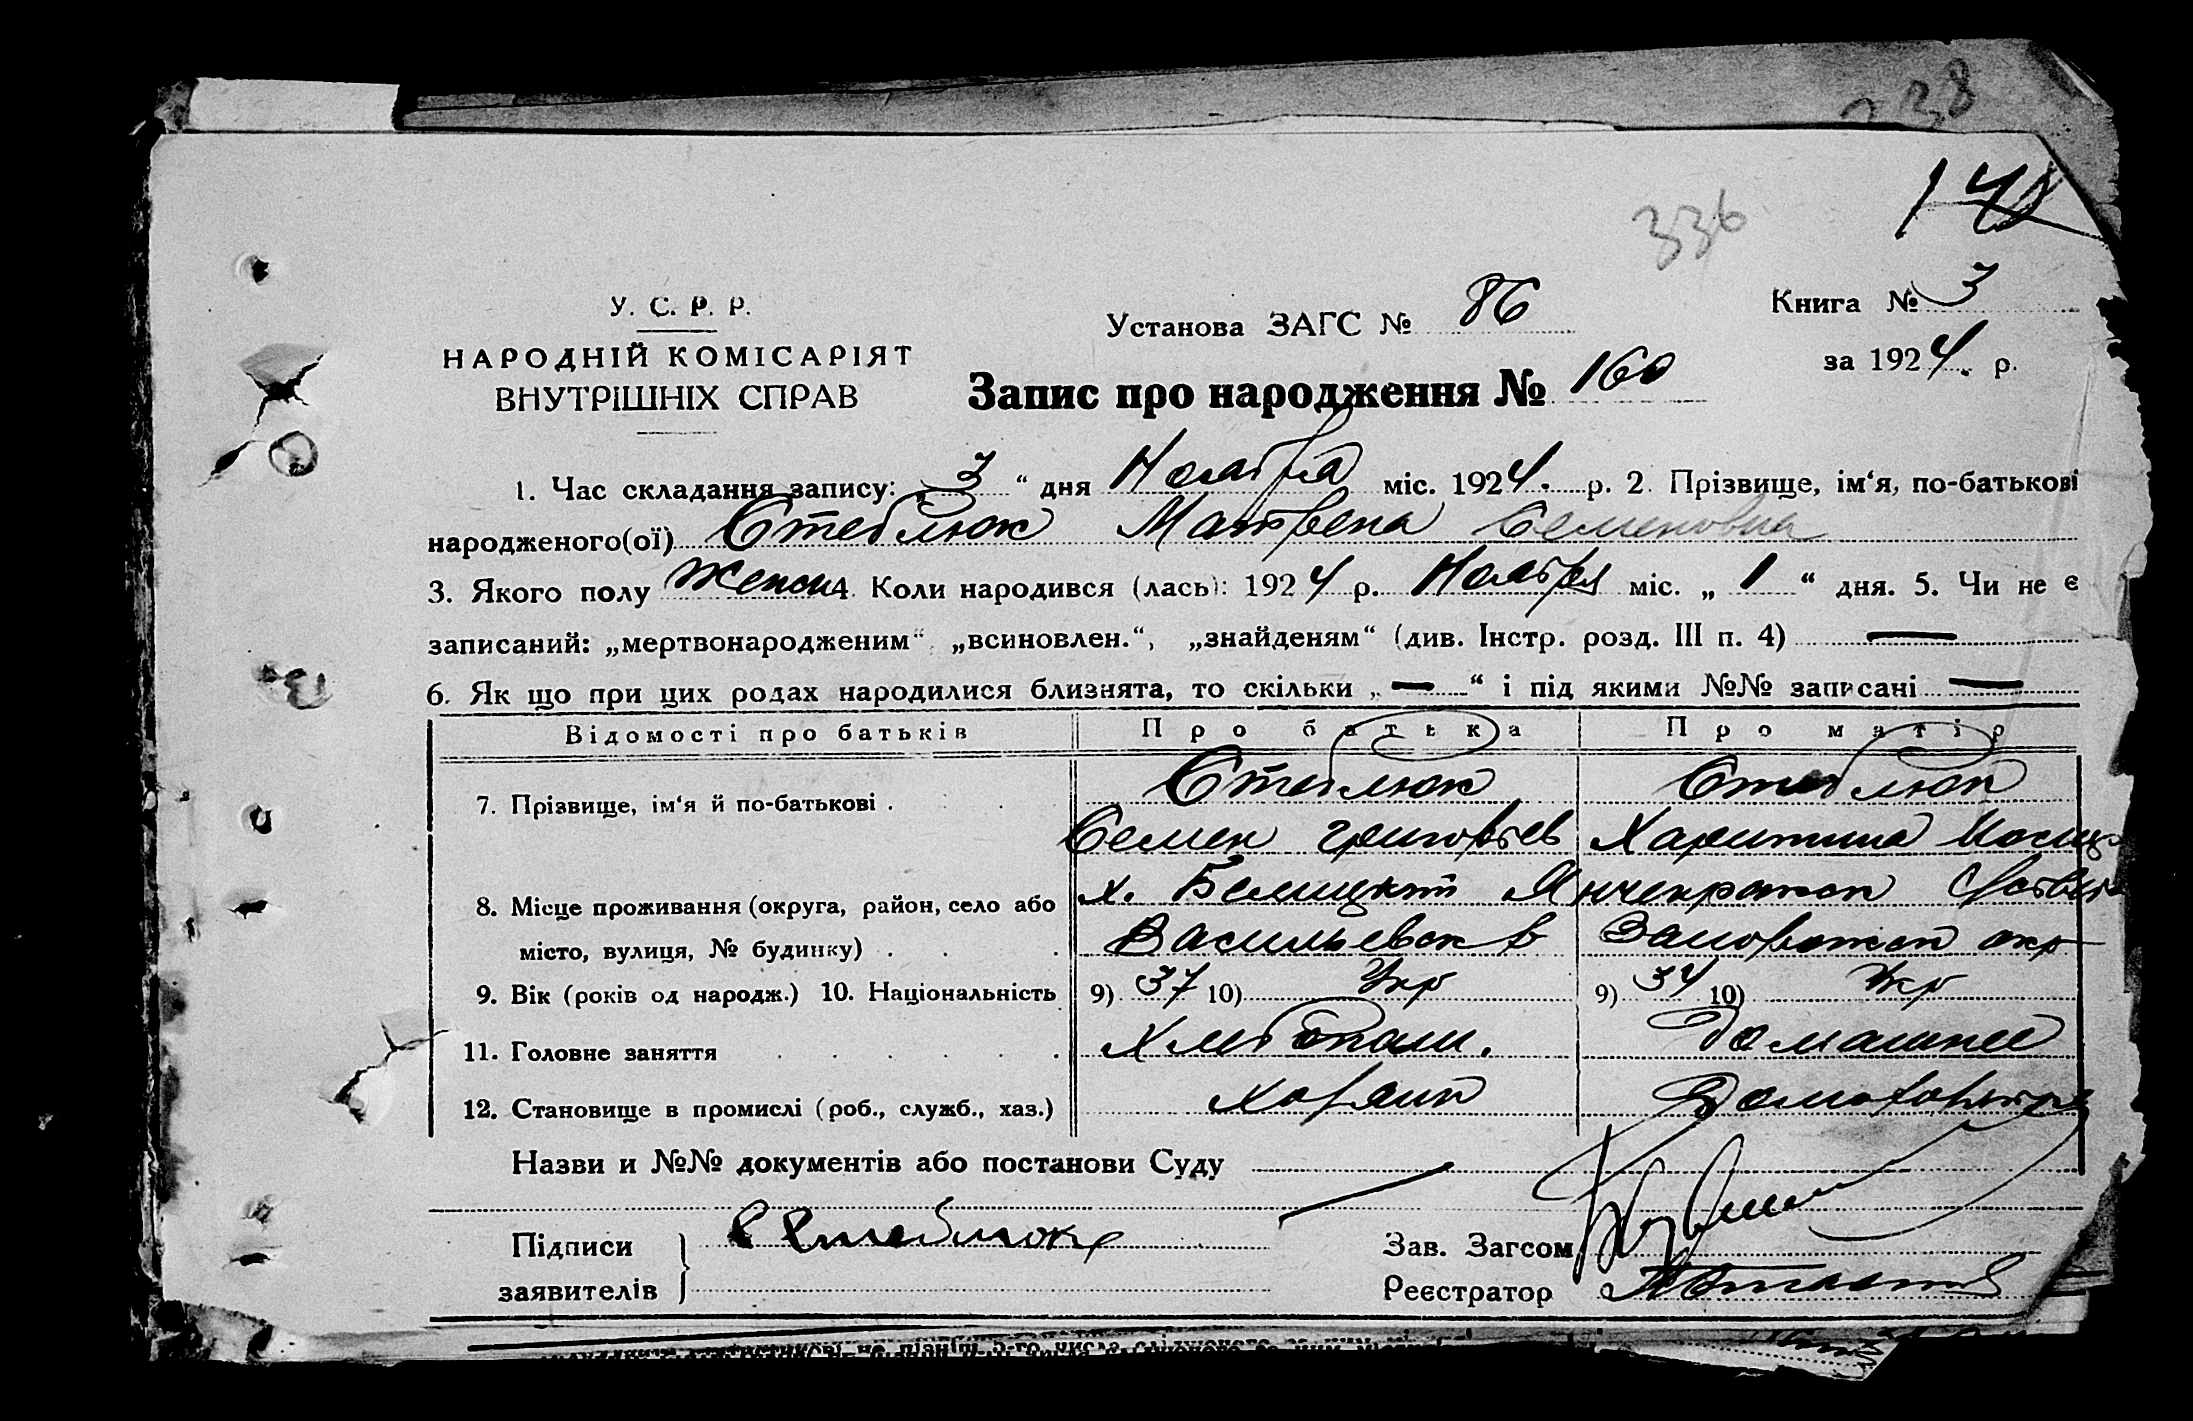 338
148
336
У. С. Р. Р.
НАРОДНІЙ КОМІСАРІЯТ
ВНУТРІШНІХ СПРАВ
Установа ЗАГС № 86
Книга № 3
за 1924. р.
Запис про народження № 160
1. Час складання запису: „ 3 “ дня Ноября міс. 1924. р. 2. Прізвище, ім‘я, по-батькові
народженого(ої) Стеблюк Матвена Семеновна
3. Якого полу женск 4. Коли народився (лась): 1924 р. Ноября міс. „ 1 “ дня. 5. Чи не є
записаний: „мертвонародженим“ „всиновлен.“, „знайденям“ (див. Інстр. розд. III п. 4) —
6. Як що при цих родах народилися близнята, то скільки „ — “ і під якими №№ записані —
Відомості про батьків Про батька Про матір
7. Прізвище, ім‘я й по-батькові . Стеблюк Стеблюк
Семен Григорьев Харитина
8. Місце проживання (округа, район, село або х. Янчекракск
місто, вулиця, № будинку) . Васильевск р Запорожск окр
9. Вік (років од народж.) 10. Національність 9) 37 10) Укр 9) 34 10) Укр
11. Головне заняття Хлебопаш. Домашнее
12. Становище в промислі (роб., служб., хаз.) хозяин Домохозяйка
Назви и №№ документів або постанови Суду
Підписи
заявителів
С Стеблюк
Зав. Загсом
Реєстратор